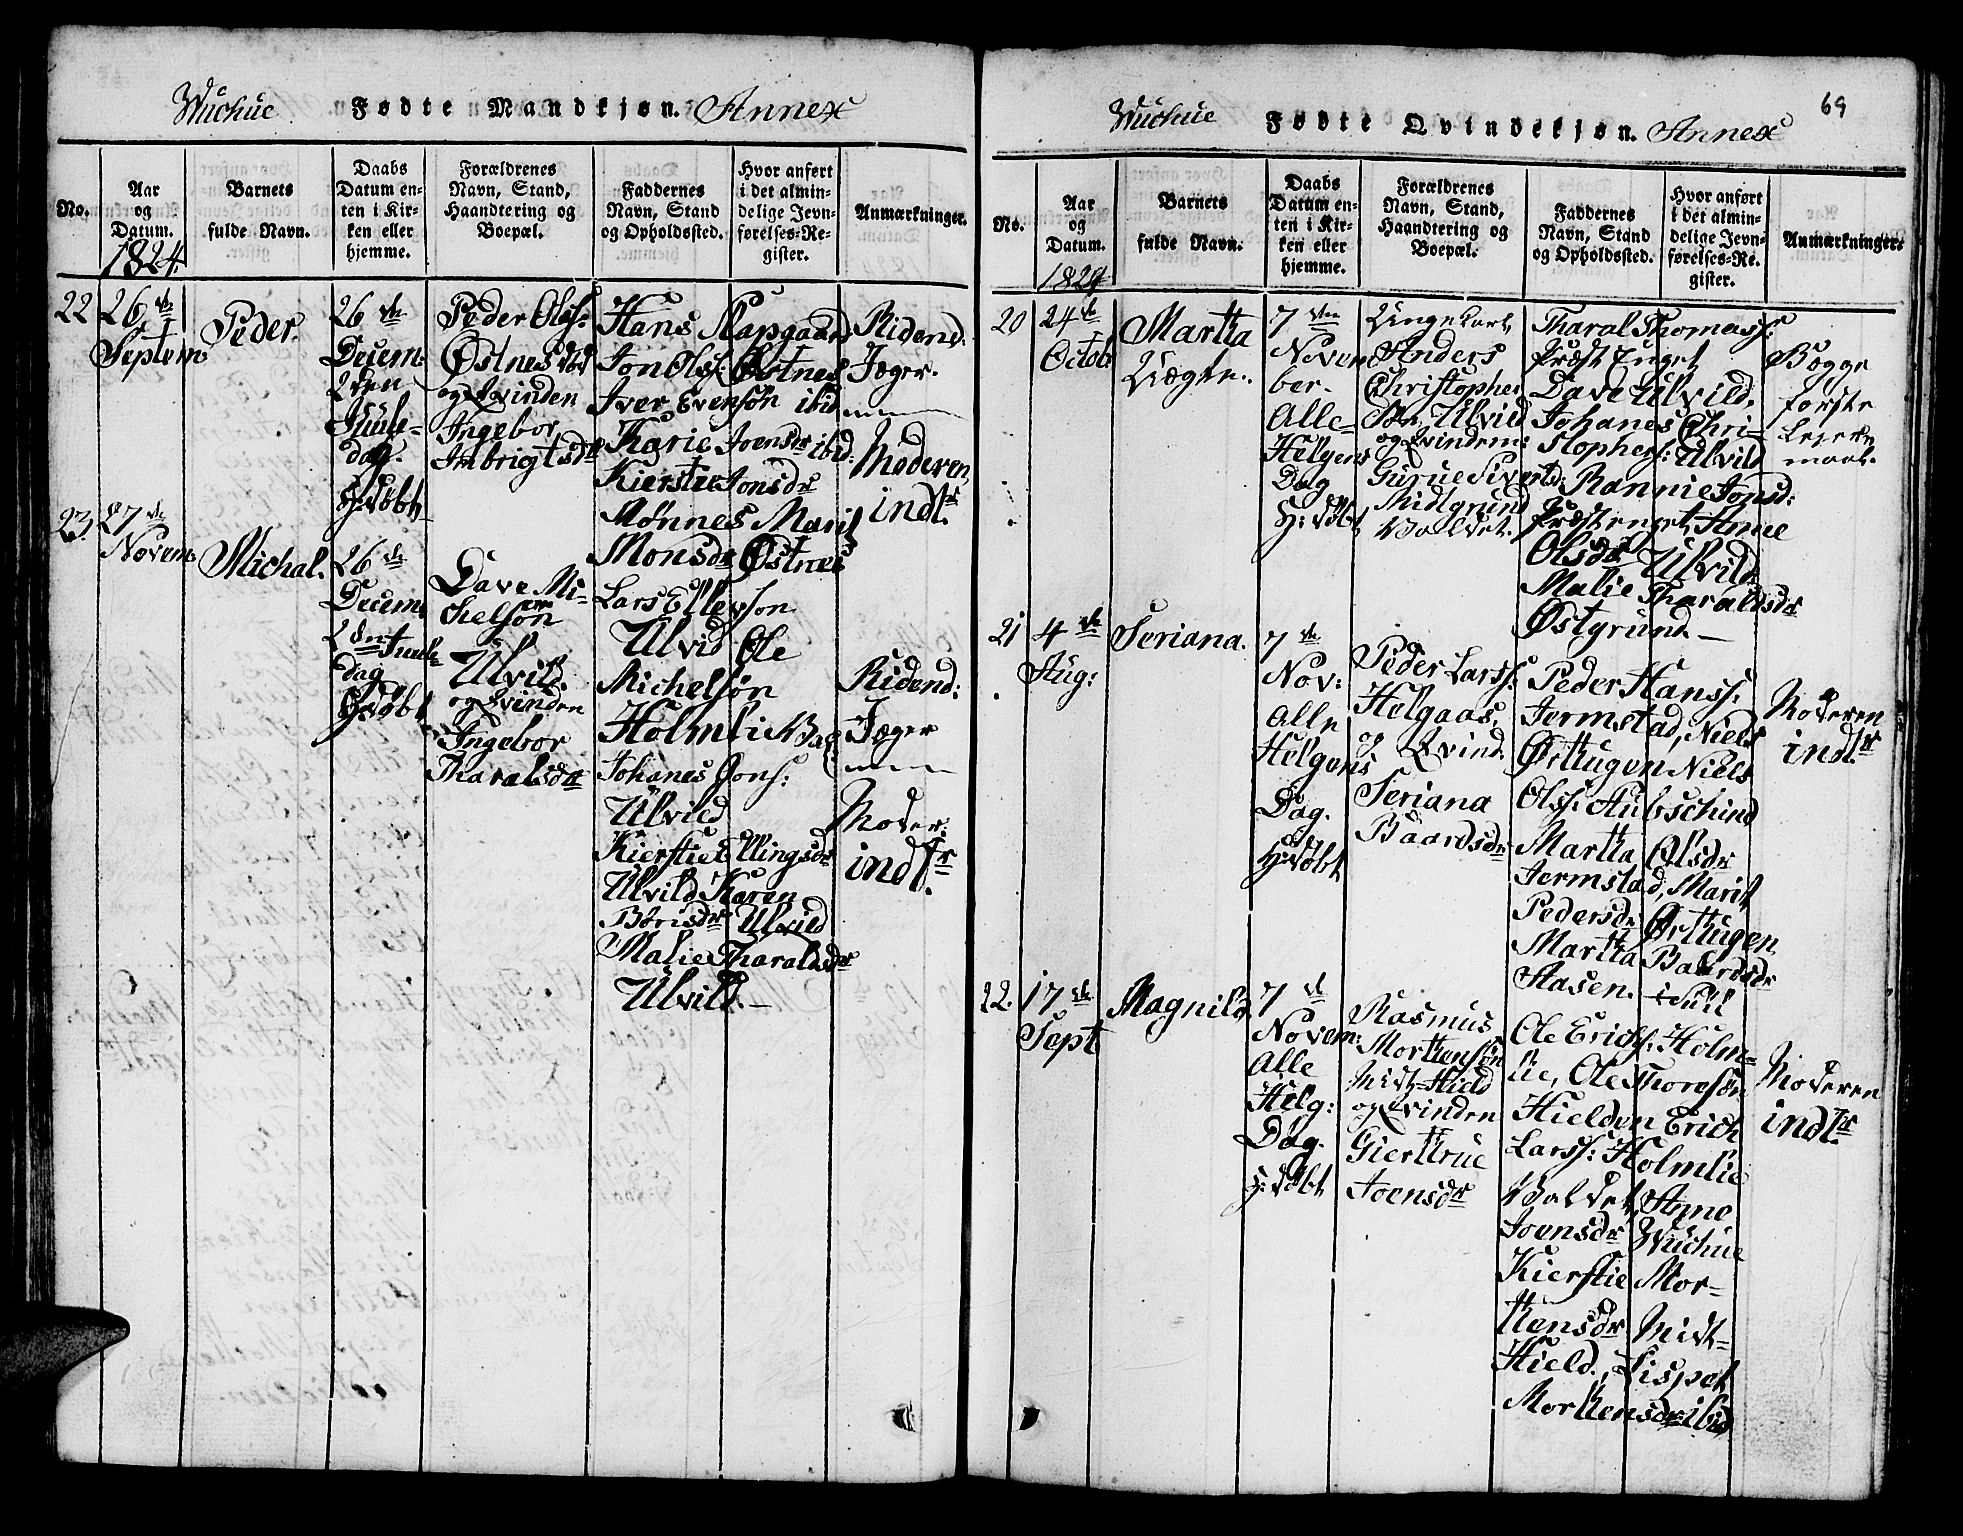 Wuchue Fødte Mandkjøn. Annex
No.
Aar og Datum.
1824.
Barnets fulde Navn.
Daabs Datum enten i Kirken eller hjemme.
Forældrenes Navn, Stand, Haandtering og Boepæl.
Faddernes Navn, Stand og Opholdssted.
Hvor anført i det almindelige Jevnførelses-Register.
Anmærkninger.
22
26de
Septem:
Peder.
26de
Decem:
2den
Juule-
dag.
H: Døbt
Peder Olss:
Østnes
og Qvinden
Ingebor
Imbrigtsdr
Hans Slapgaard
Jon Olss: Østnes
Iver Evensøn ibid
Karie Joensdr ibid:
Kierstie Jonsdr
Mønnes Marit
Monsdr Østnes
Ridend.
Jæger.
Moderen
indl.
23.
27de
Novem.
Michal.
26de
Decem.
2den Juule
dag
H: døbt
Dave Mi-
chelsøn
Ulvild.
og Qvinden
Ingebor
Tharalsdr
Lars Ellevson
Ulvid Ole
Michelsøn
Holmlie
Johanes Jons:
Ulvild
Kierstie Ellingsdr
Ulvild Karen
Børisdr Ulvild
Malie Tharaldsdr
Ulvild.
Ridend:
Jæger
Moder:
indl.
Wuchue Fødte Qvindekjøn. Annex
69
No.
Aar og Datum.
1824
Barnets fulde Navn.
Daabs Datum enten i Kirken eller hjemme.
Forældrenes Navn, Stand, Haandtering og Boepæl.
Faddernes Navn, Stand og Opholdssted.
Hvor anført i det almindelige Jevnførelses-Register.
Anmærkninger.
20
24de
Octob
Martha
Uægte.
7den
Novem
ber.
Alle-
Helgens
Dag
H: Døbt
Ungekarl
Anders
Christopher
Sen Ulvild
og Qvindem:
Gurue Sivertsd:
Midtgrund
Valdet.
Tharal Thomass:
Præstenget
Dave Ulvild,
Johanes Chri-
stophers: Ulvild
Rannie Jonsd:
Præstenget, Anne
Olsdr Ulvild
Malie Tharaldsdr
Østgrund.
Bægge
første
Leiers
maal.
21
4de
Aug:
Seriana.
7de
Nov:
Alle
Helgens
Dag.
H: døbt
Peder Larss:
Helgaas,
og Qvind.
Seriana
Baardsdr
Peder Hanss:
Jermstad, Niels
Ørthugen Niels
Olss: Aubschind
Martha Olsdr
Jermstad, Marit
Pedersdr Ørthugen
Martha Baardsdr
Aasen.
Moderen
indl.
22.
17de
Sept
Magnild
7de
Novem:
Alle
Helg:
Dag.
H: døbt
Rasmus
Morthensøn
Midt-Hield
og Qvinden
Gierthrue
Joensdr
Ole Erichs: Holm-
lie, Ole Thoresøn
Hielden Erich
Larss: Holmlie
Valdet, Anne
Joensdr Wuchue
Kierstie Mor-
thensdr Midt-
Hield, Lispet
Morthensdr ibid
Moderen
indl.